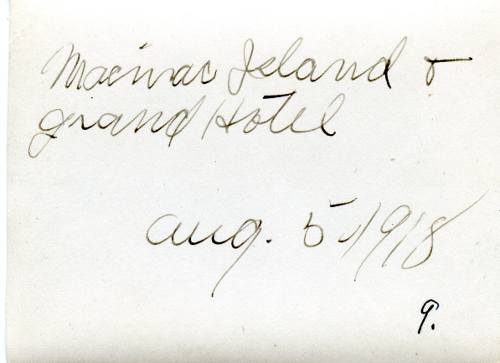 Macinac Island &
Grand Hotel
Aug. 5-1918
9.